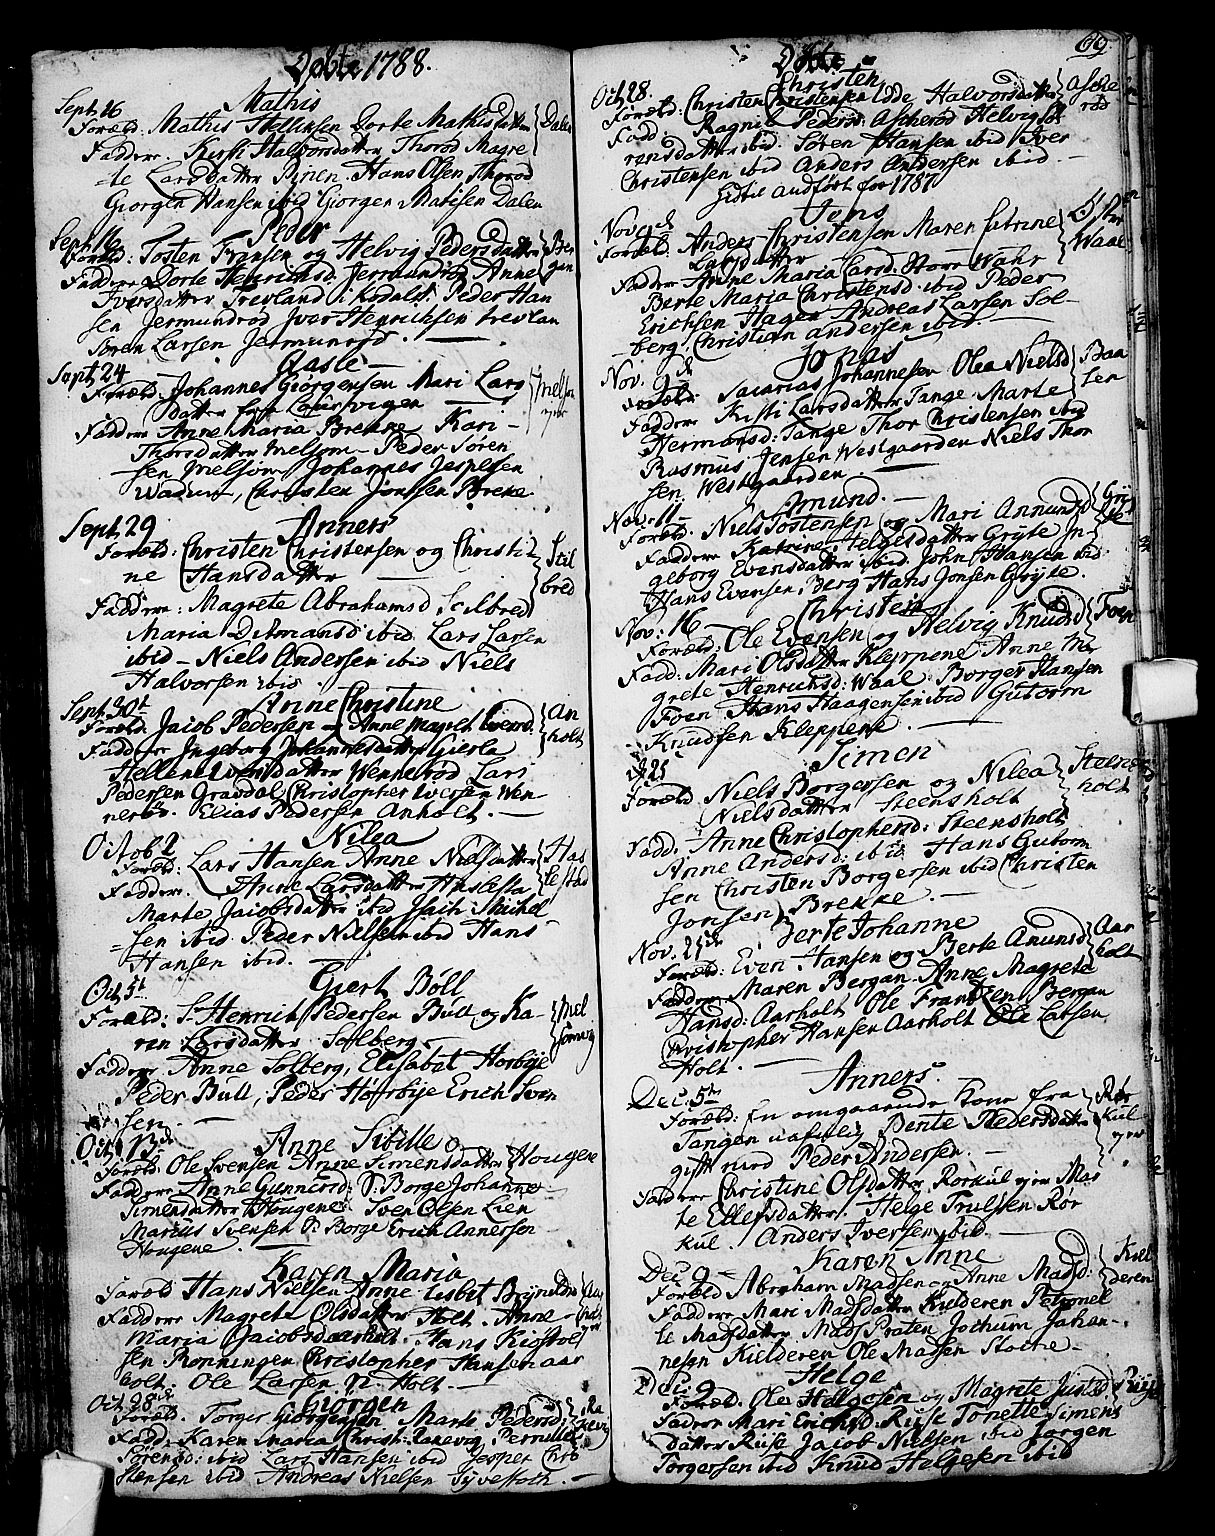 Døbte 1788.
Sept. 26 Mathis
Foræld. Mathis Hellissen Dorte Mathisdatter Dalen
Faddere. Kirsti Halvorsdatter Thorød Magre
te Larsdatter ibid. Hans Olsen Thorød
Giorgen Hansen ibid Giorgen Matisen Dalen
Sept. Peder
Foræld: Tosten Fransen og Helvig Pedersdatter Bergan
Faddere Dorte Henrichsd. Jermundrød Anne
Iversdatter Trevland i Kodal. Peder Han
sen Jermundrød Iver Henrichsen trevlan
Søren Larsen Jermunrød.
Sept 24 Aasle
Foræld. Johannes Giörgensen Mari Lars
datter fra Laurvigen Melsom
Faddere Anne Maria Brekke Kari
Thorsdatter Melsom Peder Søren
sen Melsom Johannes Jespesen
Wadum, Christen Jonssen Breke
Sept. 29 Anners
Foræld: Christen Christensen og Christi
ne Hansdatter Stilbred
Faddere: Magrete Abrahamsd Stilbred
Maria Ditmansd ibid Lars Larsen
ibid Niels Andersen ibid Niels
Halvorsen ibid.
Sept. 30t Anne Christine
Foræld. Jacob Pedersen Anne Magret Iversd. Anholt
Faddere Ingeborg Johannesdatter Gierla
Hellene Iversdatter Wennerød Lars
Pedersen Gravdal Christopher Iversen Wen
nerød. Elias Pedersen Anholt.
Octob 2 Nilea
Foræld: Lars Hansen Anne Nielsdatter Haslestad
Faddere. Anne Larsdatter Haslesta
Marte Jacobsdatter ibid Isach Michel
sen ibid Peder Nielsen ibid Hans
Hansen ibid.
Oct 5t Giert Böll
Foræld: S. Henrich Pedersen Bull og Ka
ren Larsdatter Solberg Melsomvig
Faddere Anne Solberg, Elisabet Horbye
Peder Bull, Peder Horbye Erich Sven
sen.
Oct. 13de Anne Sibille
Foræld Ole Svensen Anne Simensdatter Hougene
Faddere Anne Gunnersd. S. Borge Johanne
Simensdatter Hougene Sven Olsen Lien
Marius Svensen S. Borge Erich Annersen
Hougene.
Karen Maria
Foræld Hans Nielsen Anne Lisbet Brynildsd
Faddere Magrete Olsdatter Holt. Anne
Maria Jacobsdatter Hans
sen Rønningen Christopher Hansen aar
holt. Ole Larsen N. Holt.
Oct 28de Giorgen
Foræld. Torger Giorgensen Marte Pedersd. Ranevig
Fadd. Karen Maria Christ: Ranevig Pernille
Sørensd: ibid Lars Hansen ibid Jesper Chri
stensen ibid Andreas Nielsen Syvestoch.
69
Døbte
Oct. 28. Christen
Foræld: Christen Christensen Lode Halvorsdatter Ascherød
Fadd: Ragnil Pedersd Ascherød Helvig Sø
rensdatter ibid. Søren Hansen ibid Iver
Christensen ibid Anders Andersen ibid.
Sidst andført for 1787
Nov 9de Jens
Foræld: Anders Christensen Maren Catrine
Larsdatter Store Waal
Faddere Anne Maria Larsd: Store Wahr
Berte Maria Christensd. ibid Peder
Erichsen Hagen Andreas Larsen Sol-
berg Christian Andersen ibid.
Nov. 9de Jonas
Foræld: Sacarias Johannesen Olea Nielsd Baasen
Faddere Kirsti Larsdatter Tange Marte
Hermansd: Tange Thor Christensen ibid
Rasmus Jensen Westgaarden Niels Thor
sen Westgaarden.
Nov: 11 Amund.
Foræld. Niels Tostensen og Mari Annunds Gryte
Faddere Katrine Helgesdatter Gryte In-
geborg Evensdatter ibid. John Hansen ibid
Hans Evensen, Berg Hans Jonsen Gryte.
Nov: 16 Christen
Foræld: Ole Evensen og Helvig Knudsd Foen
Fadd: Mari Olsdatter Kleppene Anne Ma
grete Henrichsd: Waal Borger Hansen
Foen Hans Haagensen ibid Gutorm
Knudsen Kleppene.
d. 25 Simen
Foræld. Niels Borgersen og Nilea
Nielsdatter Steensholt Steensholt
Fadd: Anne Christophersd: Steensholt
Anne Andersd: ibid Hans Gutorm
sen Christen Borgersen ibid Christen
Jonsen Brekke.
Nov. 25de Berte Johanne
Foræld: Even Hansen og Berte Anunsd Aarholt
Faddere Maren Bergan. Anne Magrete
Hansd: Aarholt Ole Frandzen Bergan
Christopher Hansen Aarholt Ole Larsen
Holt.
Dec. 5te Anners.
Foræld: En omgaaende Kone fra
Tangen nafnlig Bente Pedersdatter
gift med Peder Andersen. Rørkul
Faddere Christine Olsdatter Rorkul Mar
te Ellefsdatter. Helge Trulsen Rør
kul. Anders Iversen ibid.
Dec. 9 Karen Anne
Foræld Abraham Madsen og Anne Madsd: Kielderen
Faddere Mari Madsdatter Kielderen Petronel
le Madsdatter Mads Præten Jochum Johan-
nesen Kielderen Ole Madsen Stocke
Dec. 9 Helge
Foræld: Ole Helgesen og Magrete Justsd Ruse
Faddere Mari Erichsd. Ruse Tonette Simens
datter Ruse Jacob Nielsen ibid Jørgen
Torgersen ibid Knud Helgesen ibid